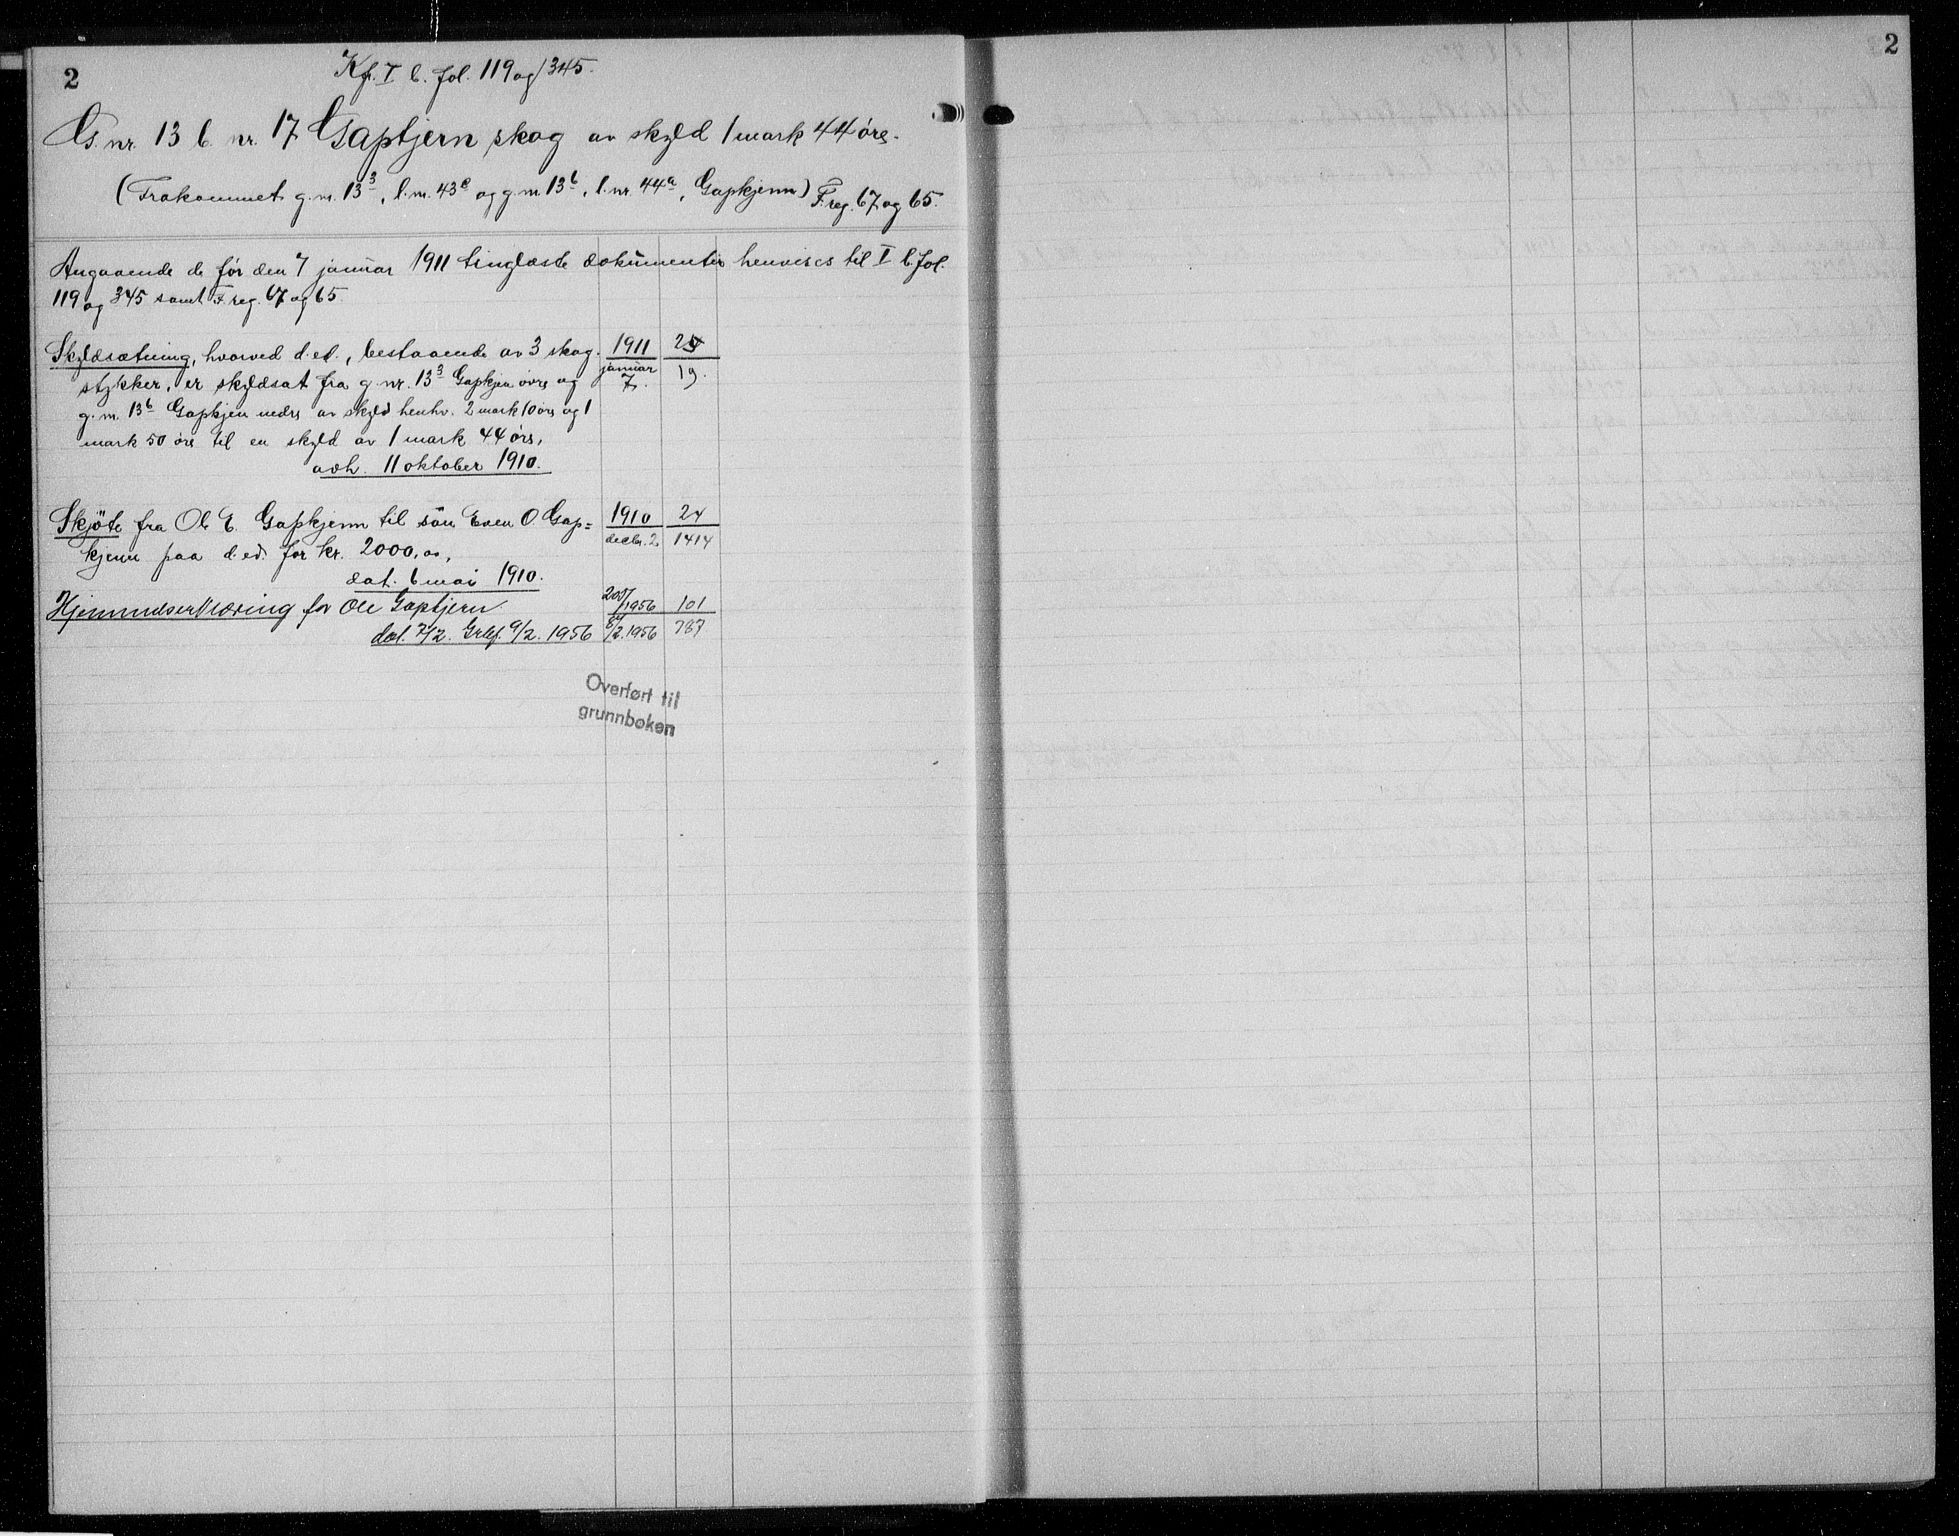 2
Kfr. I b. fol. 119 og 345.
G. nr. 13 b. nr. 17 Gaptjern skog av skyld 1 mark 44 öre.
(Frakommet g. nr. 13³, l. nr. 43c og g. nr. 13b, l. nr. 44a, Gapkjenn) F. reg. 67 og 65.
Angaaende de før den 7 januar 1911 tinglæste dokumenter henvises til I b. fol.
119 og 345 samt F. reg. 67 og 65.
Skyldsætning, hvorved d. ed., bestaaende av 3 skog- 1911 24
stykker, er skyldsat fra g. nr. 13³ Gapkjen övre og januar 7. 19.
g. nr. 13b Gapkjen nedre av skyld henhv. 2 mark 10 öre og 1
mark 50 öre til en skyld av 1 mark 44 öre,
avh. 11 oktober 1910.
Skjöte fra Ole E. Gapkjenn til sön Even O Gap= 1910 24
kjenn paa d. ed. for kr. 2000,00, decbr. 2 1414
dat. 6 mai 1910.
Hjemmelserklæring for Ole Gaptjern 1956 101
dat. 7/2. Grlgf. 9/2. 1956 /2. 1956 787
Overført til
grunnboken
2